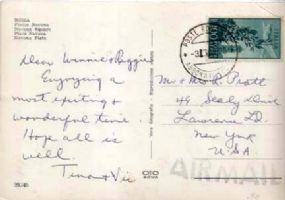 ROMA
Piazza Navona
Navona Square
Place Navona
Navona Platz
Dear Winnie & Reggie
Enjoying a
most exciting &
wonderful time.
Hope all is
well.
Tina & Vic
Mr & Mrs R. Pratt
49 Sealy Drive
Lawrence L.D.
New York
U.S.A
AIRMAIL
OTO
ROMA